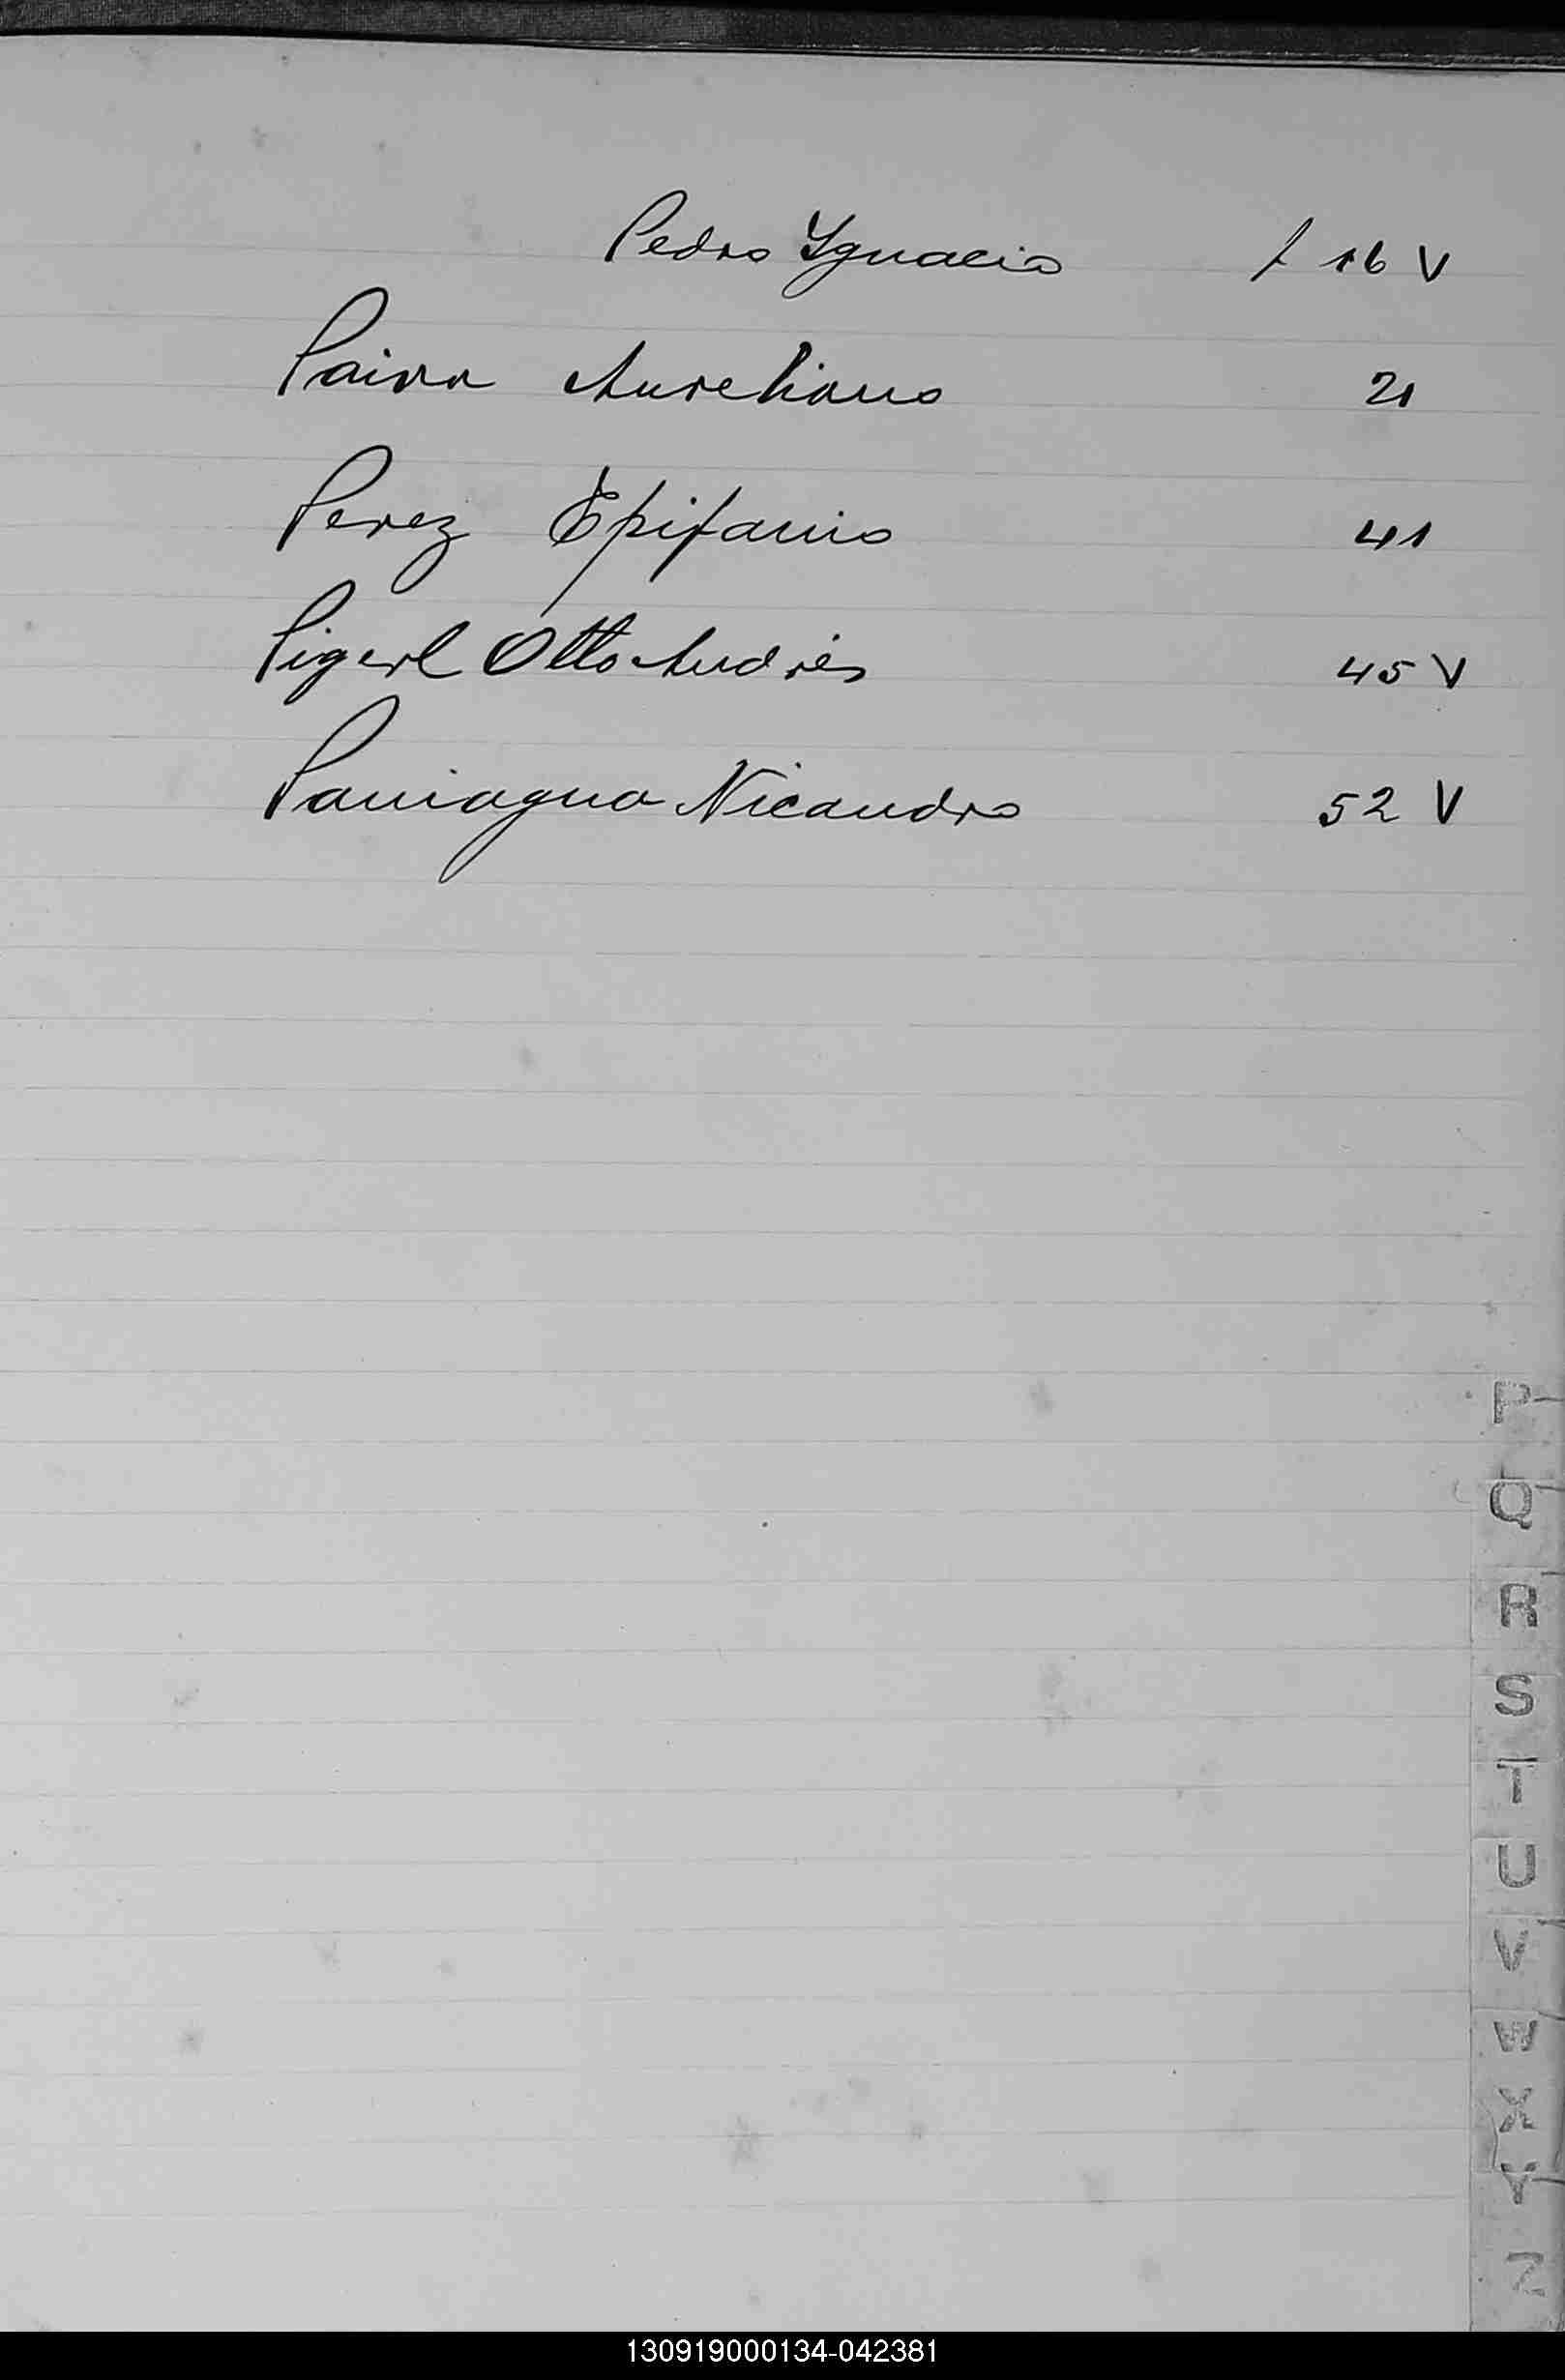 Pedro Ygnacio f 16 V
Paiva Aureliano 21
Perez Epifanio 41
Pigerl Otto Andrés 45 V
Paniagua Nicandro 52 V
P
Q
R
S
T
U
V
W
X
Y
Z
130919000134-042381